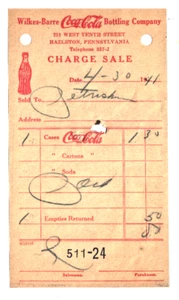 Wilkes-Barre Coca-Cola Bottling Company
113 WEST TENTH STREET
HAZLETON, PENNSYLVANIA
Telephone 557-J
CHARGE SALE
Date 4-30 1941
Sold To
Address
1 Cases Coca-Cola 1 30
" Cartons "
" Soda
Paid
1 Empties Returned 50
80
511-24
Salesman. Purchaser.